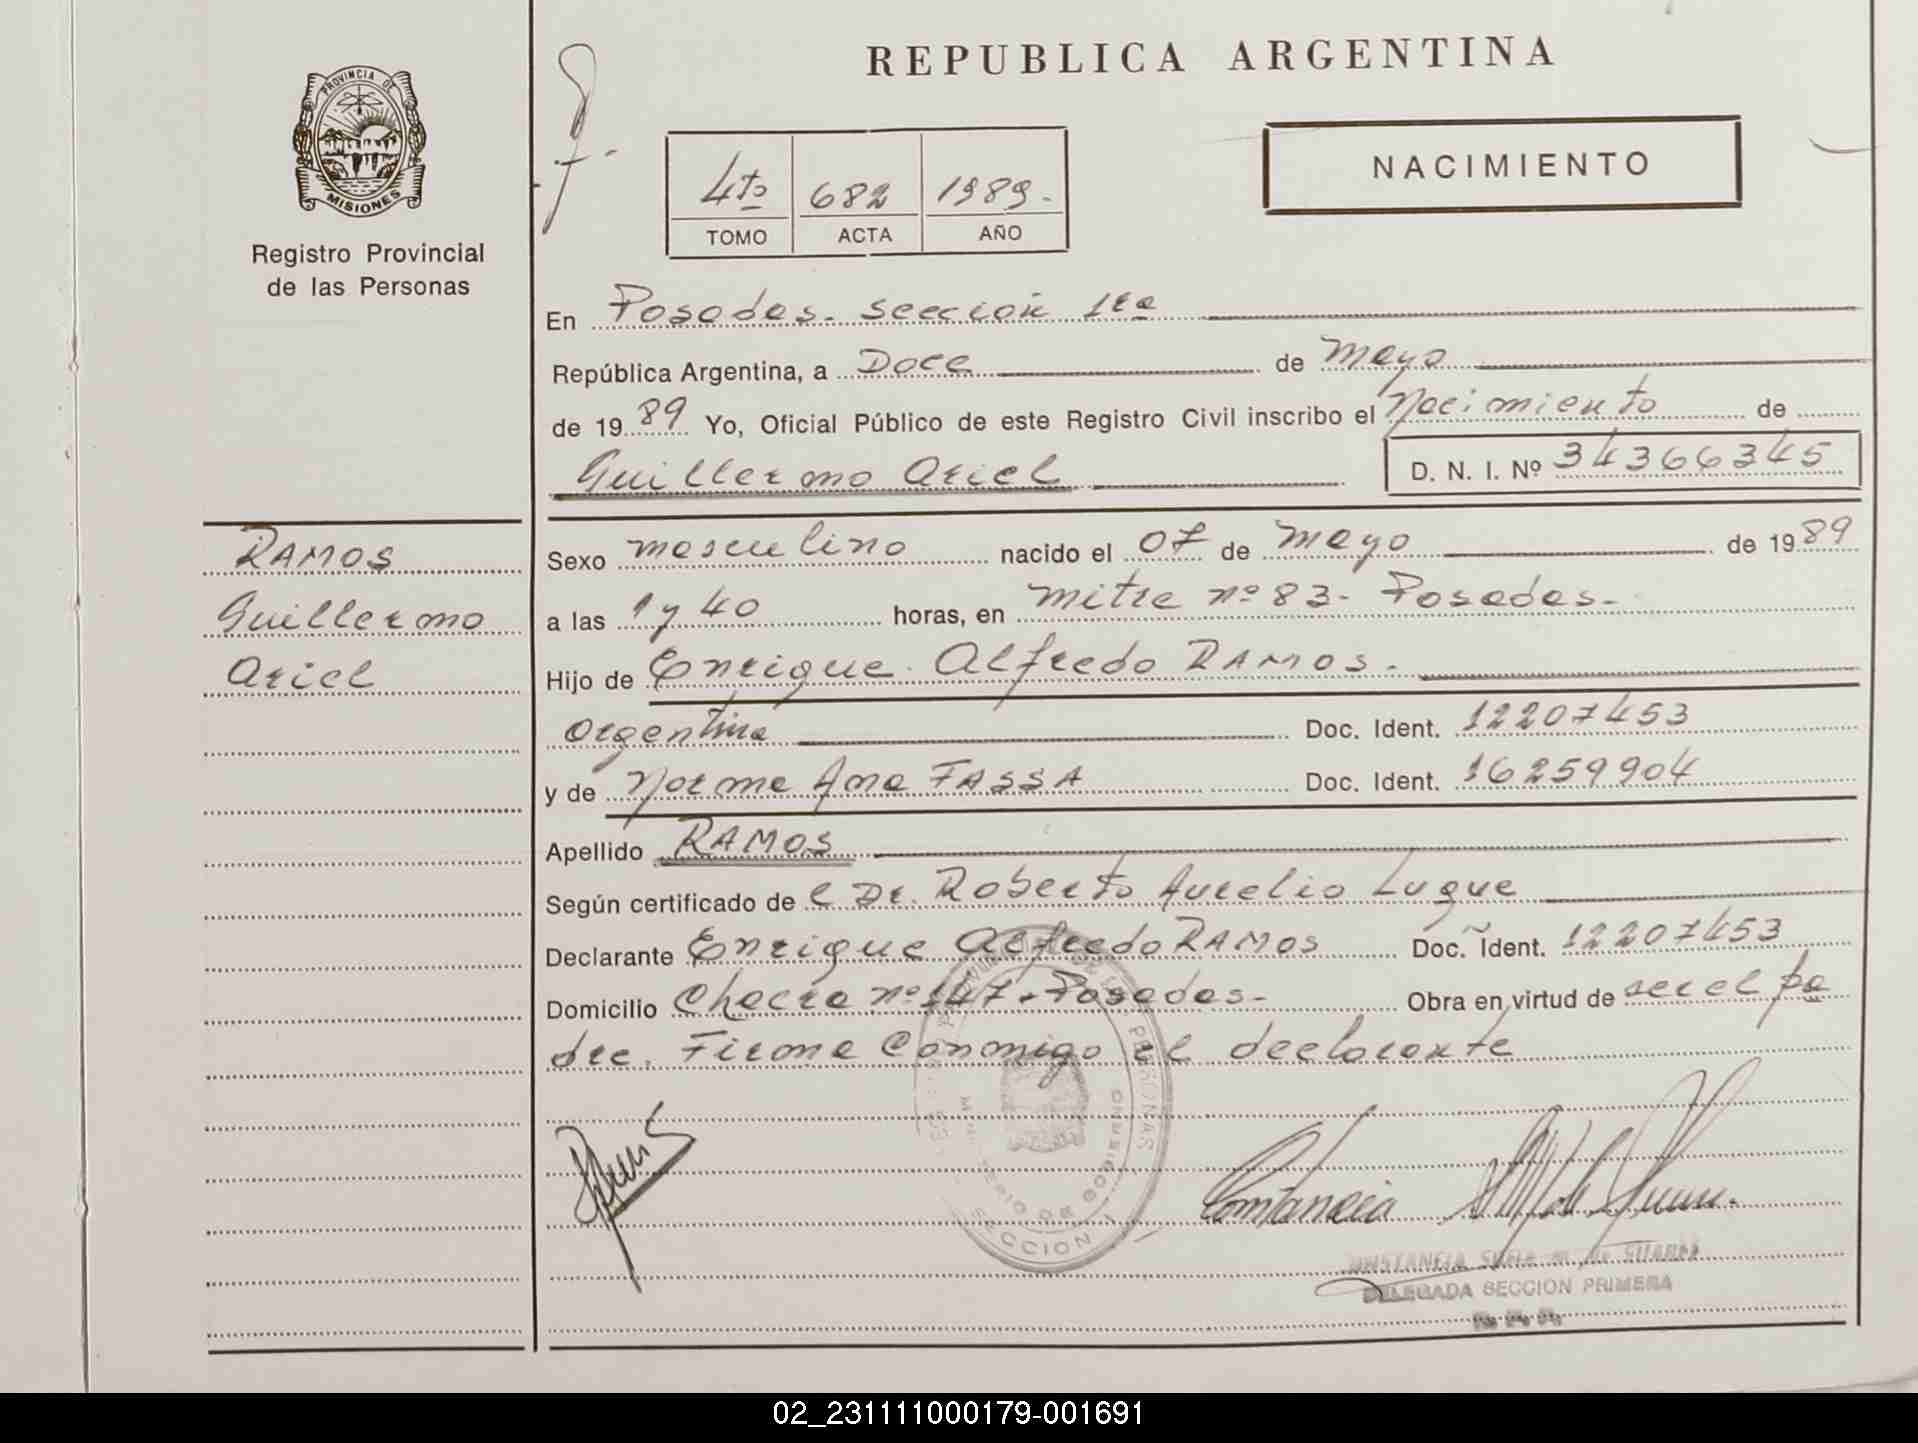 REPUBLICA ARGENTINA
PROVINCIA DE
MISIONES
Registro Provincial
de las Personas
4to 682 1989.
TOMO ACTA AÑO
NACIMIENTO
En Posadas. sección 1ra
República Argentina, a Doce de mayo
de 1989 Yo, Oficial Público de este Registro Civil inscribo el Nacimiento de
Guillermo Ariel D. N. I. Nº 34366345
RAMOS
Guillermo
Ariel
Sexo masculino nacido el 07 de mayo de 1989
a las 1 y 40 horas, en mitre nº 83 - Posadas.
Hijo de Enrique Alfredo RAMOS.
Argentina Doc. Ident. 12207453
y de Norma Ana FASSA Doc. Ident. 16259904
Apellido RAMOS
Según certificado de l Dr. Roberto Aurelio Luque
Declarante Enrique Alfredo RAMOS Doc. Ident. 12207453
Domicilio Chacra nº 147 - Posadas. Obra en virtud de ser el pa
dre. Firma Conmigo el declarante
MINISTERIO DE GOBIERNO
SECCION 1
Constancia
DELEGADA SECCION PRIMERA
02_231111000179-001691